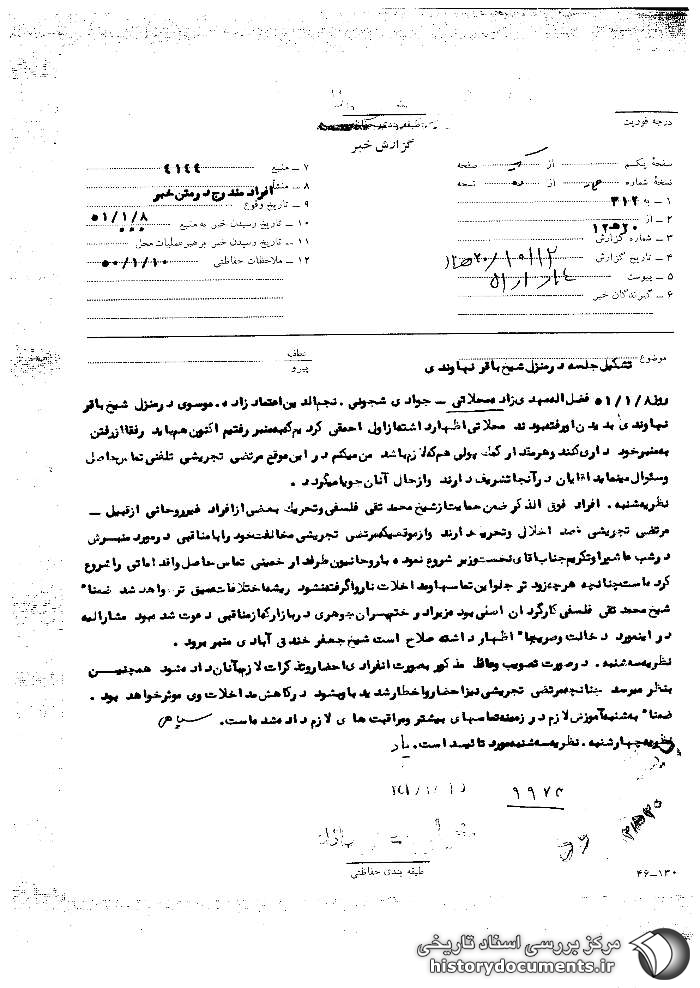 درجه فوریت
گزارش خبر
صفحهٔ یکم از یک صفحه
نسخهٔ شماره از نسخه
۱ ــ به ۳۱۲
۲ ــ از ۲۰ه۱۲
۳ ــ شماره گزارش
۴ ــ تاریخ گزارش
۵ ــ پیوست
۶ ــ گیرندگان خبر
۷ ــ منبع ۴۱۴۴
۸ ــ منشأ افراد مندرج در متن خبر
۹ ــ تاریخ وقوع ۵۱/۱/۸
۱۰ ــ تاریخ رسیدن خبر به منبع
۱۱ ــ تاریخ رسیدن خبر به رهبر عملیات محل
۱۲ ــ ملاحظات حفاظتی ۵۰/۱/۱۰
موضوع تشکیل جلسه در منزل شیخ باقر نهاوندی
عطف
پیرو
روز ۵۱/۱/۸ فضل المهدی زاد محلاتی ــ جوادی شجونی . نجم الدین اعتماد زاده . موسوی در منزل شیخ باقر
نهاوندی بدیدن او رفته بودند محلاتی اظهار داشته از اول احمقی کردیم که به منبر رفتیم اکنون هم باید رفقا از رفتن
به منبر خود داری کنند و هر مقدار کمک پولی هم که لازم باشد من میکنم در این موقع مرتضی تجریشی تلفنی تماس حاصل
و سئوال مینماید اقایان در آنجا تشریف دارند و از حال آنان جویا میگردد .
نظریه شنبه . افراد فوق الذکر ضمن حمایت از شیخ محمد تقی فلسفی و تحریک بعضی از افراد غیر روحانی از قبیل ــ
مرتضی تجریشی قصد اخلال و تحریک دارند و از موقعیکه مرتضی تجریشی مخالفت خود را با مناقبی در مورد منبرش
در شب عاشورا و تکریم جناب اقای نخست وزیر شروع نموده با روحانیون طرفدار خمینی تماس حاصل و اقداماتی را شروع
کرده است چنانچه هرچه زودتر جلو این تماسها و مداخلات ناروا گرفته نشود ریشه اختلافات عمیق تر واهد شد ضمناً
شیخ محمد تقی فلسفی کارگردان اصلی بوده زیرا در ختم پسران جوهری در بازار که از مناقبی دعوت شده بود مشارالیه
در اینمورد دخالت و صریحاً اظهار داشته صلاح است شیخ جعفر خندق آبادی منبر برود .
نظریه سه شنبه . در صورت تصویب وعاظ مذکور بصورت انفرادی احضار و تذکرات لازم به آنان داده شود همچنین
بنظر میرسد چنانچه مرتضی تجریشی نیز احضار و اخطار شدید باو بشود در کاهش مداخلات وی موثر خواهد بود .
ضمناً به شنبه آموزش لازم در زمینه تماسهای بیشتر و مراقبت های لازم داده شده است .
نظریه چهارشنبه . نظریه سه شنبه مورد تائید است .
۹۹۷۳
طبقه بندی حفاظتی
۴۶ــ۱۳۰
مرکز بررسی اسناد تاریخی
historydocuments.ir